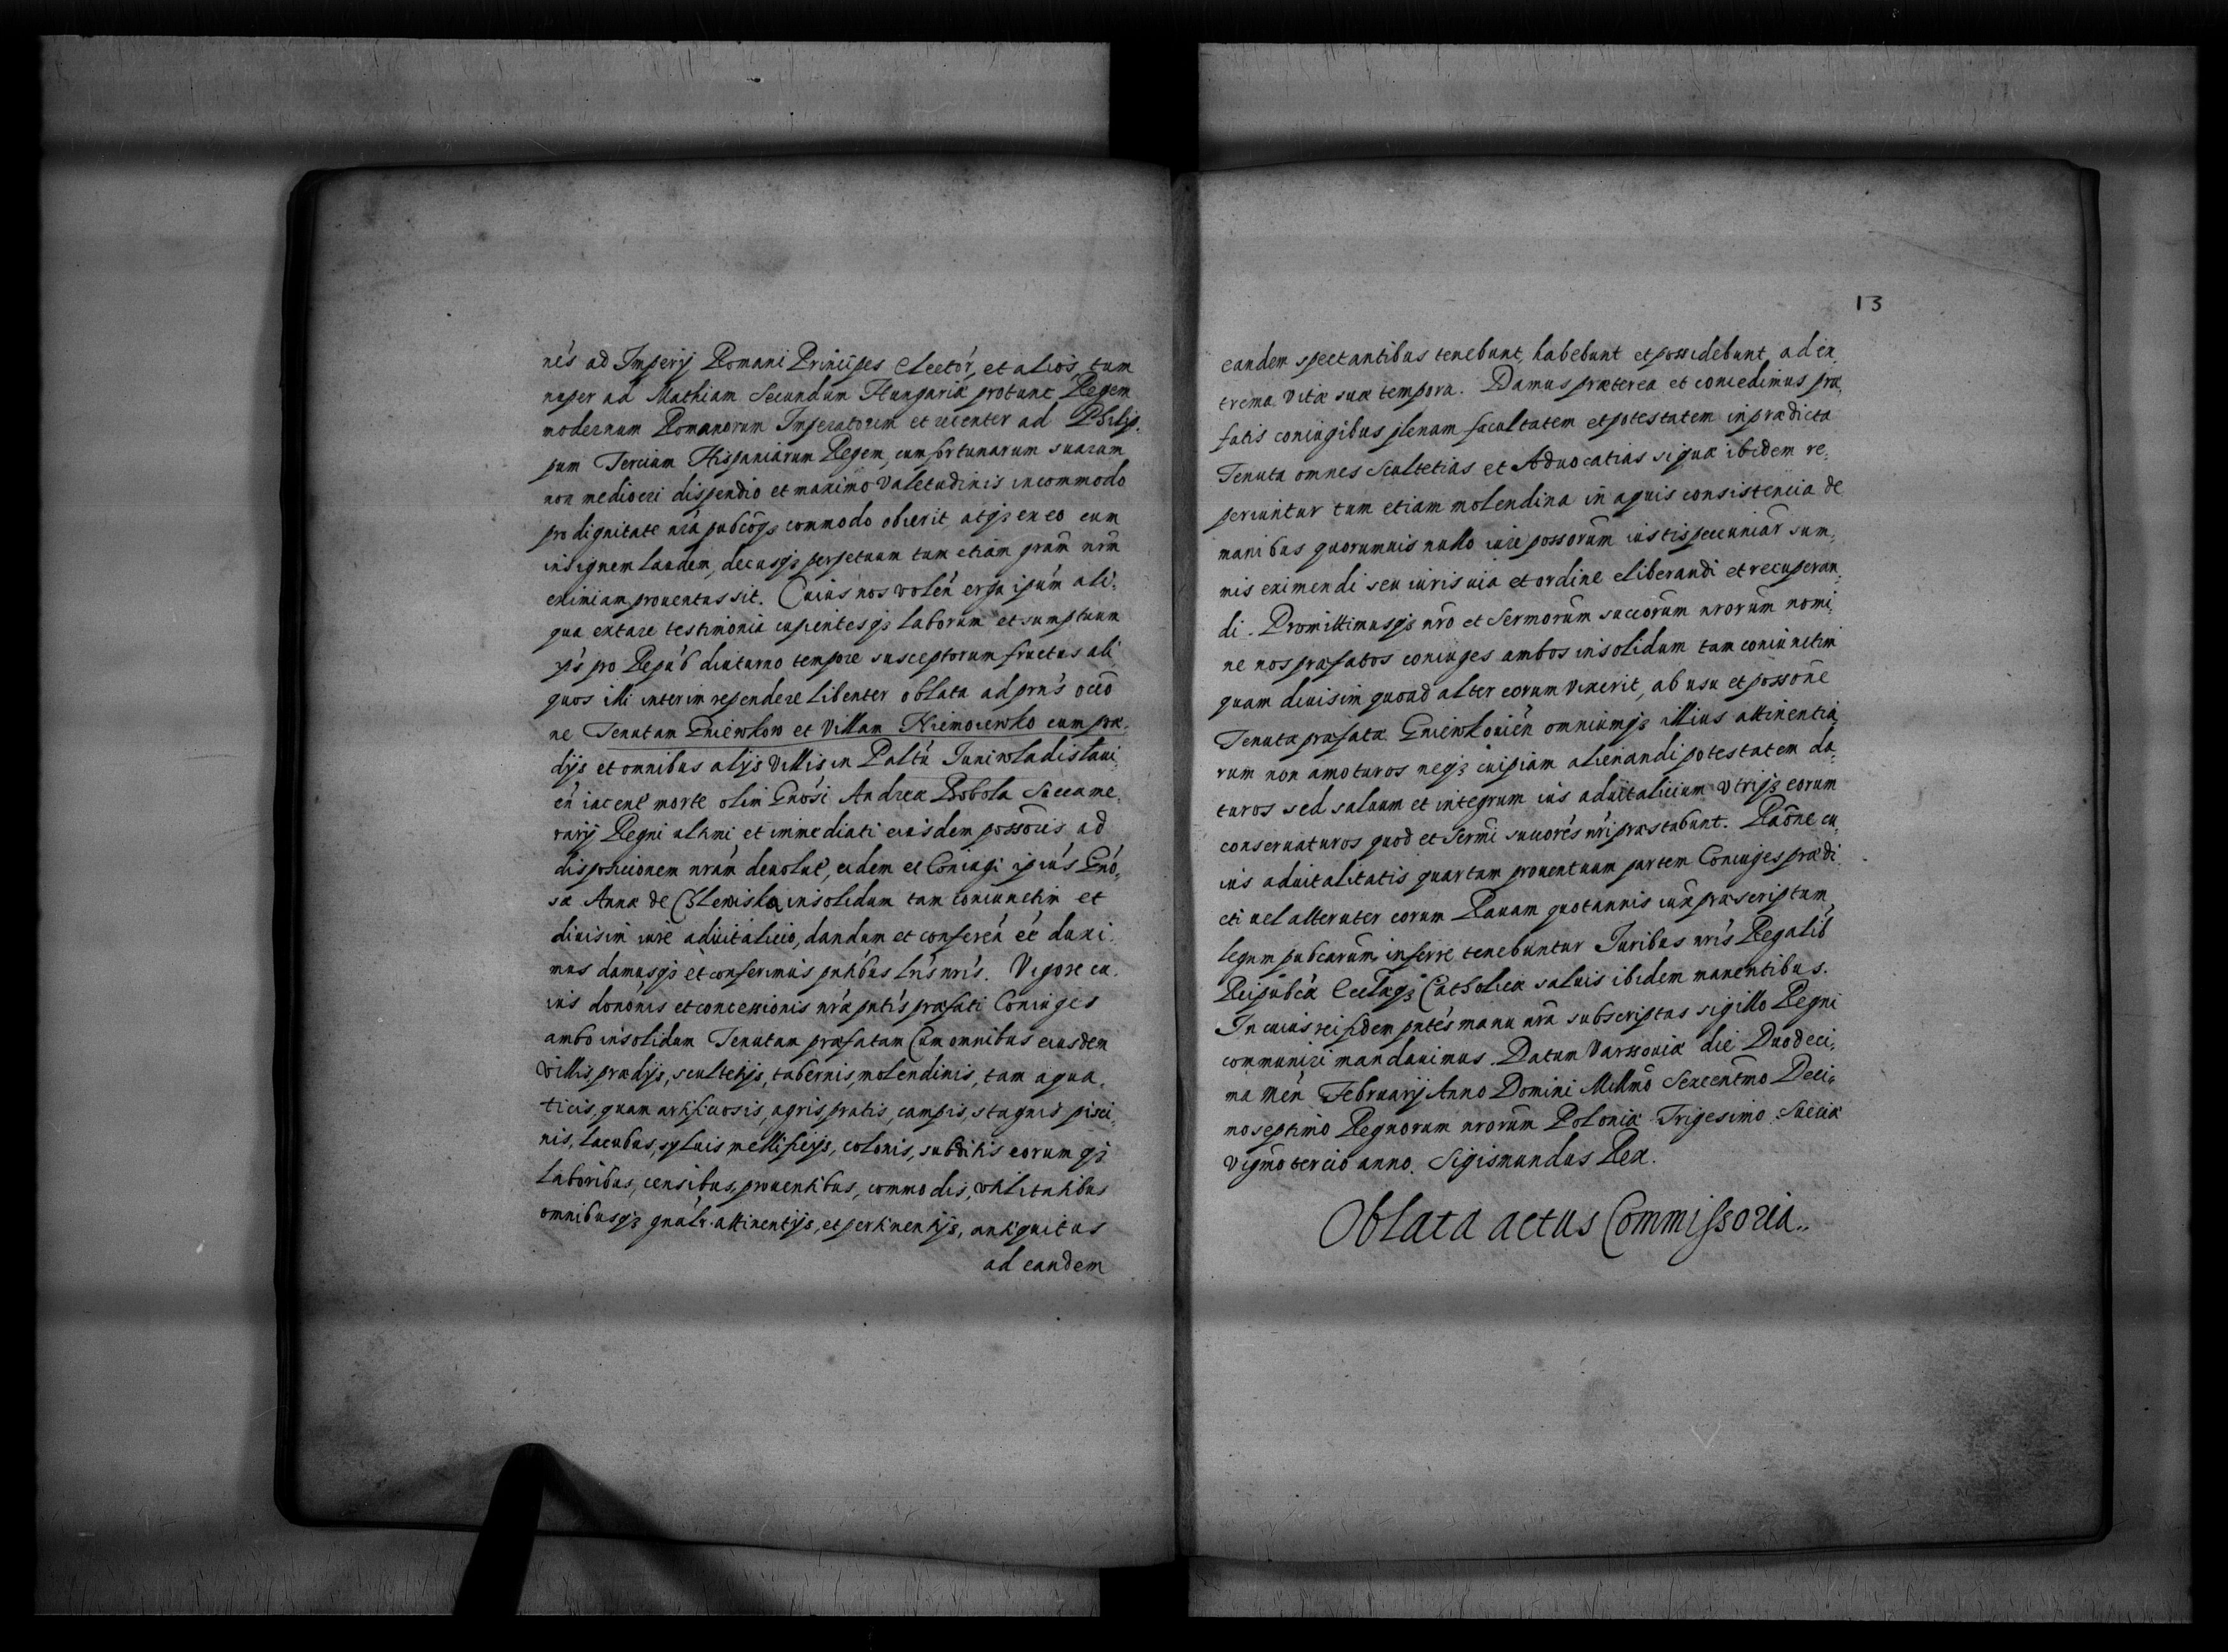 nes ad Imperij Romani Principes Elector, et alios, tum
nuper ad Mathiam Secundum Hungariæ protunc Regem
modernum Romanorum Imperatorem et recenter ad Philip.
pum Tercium Hispaniarum Regem, cum fortunarum suarum
non mediocri dispendio et maximo valetudinis incommodo
pro dignitate nra pubcoqȝ commodo obierit atqȝ ex eo eum
insignem laudem, decusqȝ perpetuum tum etiam gram nrm
eximiam prouentus sit. Cuius nos volen erga ipum ali.
qua extare testimonia cupientesqȝ laborum et sumptuum
ijs pro Repub diuturno tempore susceptorum fructus ali
quos illi interim rependere libenter oblata ad prns occo
ne Tenutam Gniewkow et Villam Kiemorewko cum præ.
dijs et omnibus alijs villis in Paltu Juniwladislaui.
en iacent morte olim Gnosi Andreæ Bobola Succame.
rarij Regni ultimi et immediati eiusdem possoris, ad
disposicionem nram deuolut, eidem et Coniugi ipius Gno.
sæ Annæ de Chlewiska insolidum tam coniunctim et
diuisim iure aduitalicio, dandum et conferen ee duxi.
mus damusqȝ et conferimus pntibus lris nris. Vigore cu.
ius dononis et concessionis nræ pntis præfati Coniuges
ambo insolidum Tenutam præfatam Cum omnibus eiusdem
villis, prædijs, scultetijs, tabernis, molendinis, tam aqua.
ticis, quam artificiosis, agris, pratis, campis, stagnis pisci
nis, lacubus, syluis mellificijs, colonis, subditis eorumqȝ
laboribus, censibus, prouentibus, commodis, vtilitatibus
omnibusqȝ gnalr attinentijs, et pertinentijs, antiquitus
ad eandem
13
eandem spectantibus tenebunt, habebunt et possidebunt ad ex
trema vitæ suæ tempora. Damus præterea et concedimus præ,
fatis coniugibus plenam facultatem et potestatem in prædicta
Tenuta omnes Scultetias et Aduocatias si quæ ibidem re,
periuntur tum etiam molendina in aquis consistencia de
manibus quorumuis nullo iure possorum iustis pecuniar sum,
mis eximendi seu iuris uia et ordine eliberandi et recuperan,
di. Promittimusqȝ nro et Sermorum succorum nrorum nomi,
ne nos præfatos coniuges ambos insolidum tam coniunctim
quam diuisim quoad alter eorum vixerit, ab usu et possone
Tenutæ præfatæ Gniewkouien omniumqȝ illius attinentia,
rum non amoturos neqȝ cuipiam alienandi potestatem da,
turos sed saluum et integrum ius aduitalicium vtriqȝ eorum
conseruaturos quod et Sermi succores nri præstabunt. Raone cu,
ius aduitalitatis quartam prouentuum partem Coniuges prædi
cti uel alteruter eorum Rauam quotannis iux præscriptum
legum pubcarum inferre tenebuntur Juribus nris Regalib
Reipubcæ Ecclæqȝ Catholicæ saluis ibidem manentibus.
In cuius rei fidem pntes manu nra subscriptas sigillo Regni
communiri mandauimus. Datum Varssouiæ die Duodeci,
ma Men Februarij Anno Domini Millmo Sexcentmo Deci,
moseptimo Regnorum nrorum Poloniæ Trigesimo Sueciæ
vigmo tercio anno. Sigismundus Rex.
Oblata actus Commissoria..